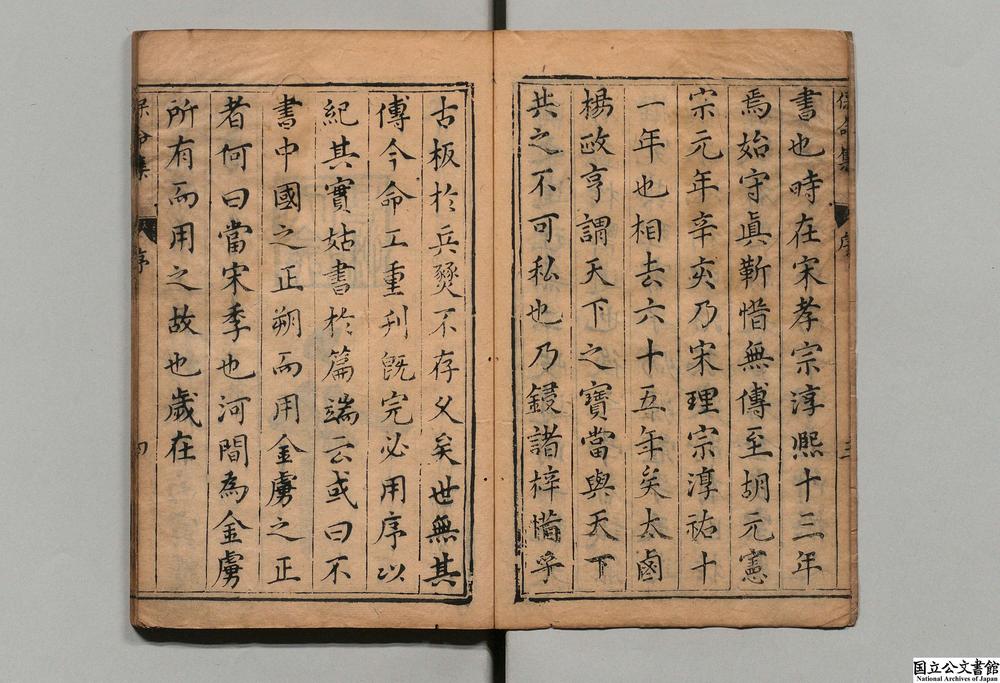 書也時在宋孝宗淳熈十三年
焉始守眞靳惜無傳至胡元憲
宗元年辛亥乃宋理宗淳祐十
一年也相去六十五年矣太鹵
楊政亨謂天下之寶當與天下
共之不可私也乃鋟諸梓惜乎
古板於兵燹不存乆矣世無其
傳今命工重刋旣完必用序以
紀其實姑書於篇端云或曰不
書中國之正朔而用金虜之正
者何曰當宋季也河間為金虜
所有而用之故也歲在
保命集
序
三
保命集
序
四
国立公文書館
National Archives of Japan